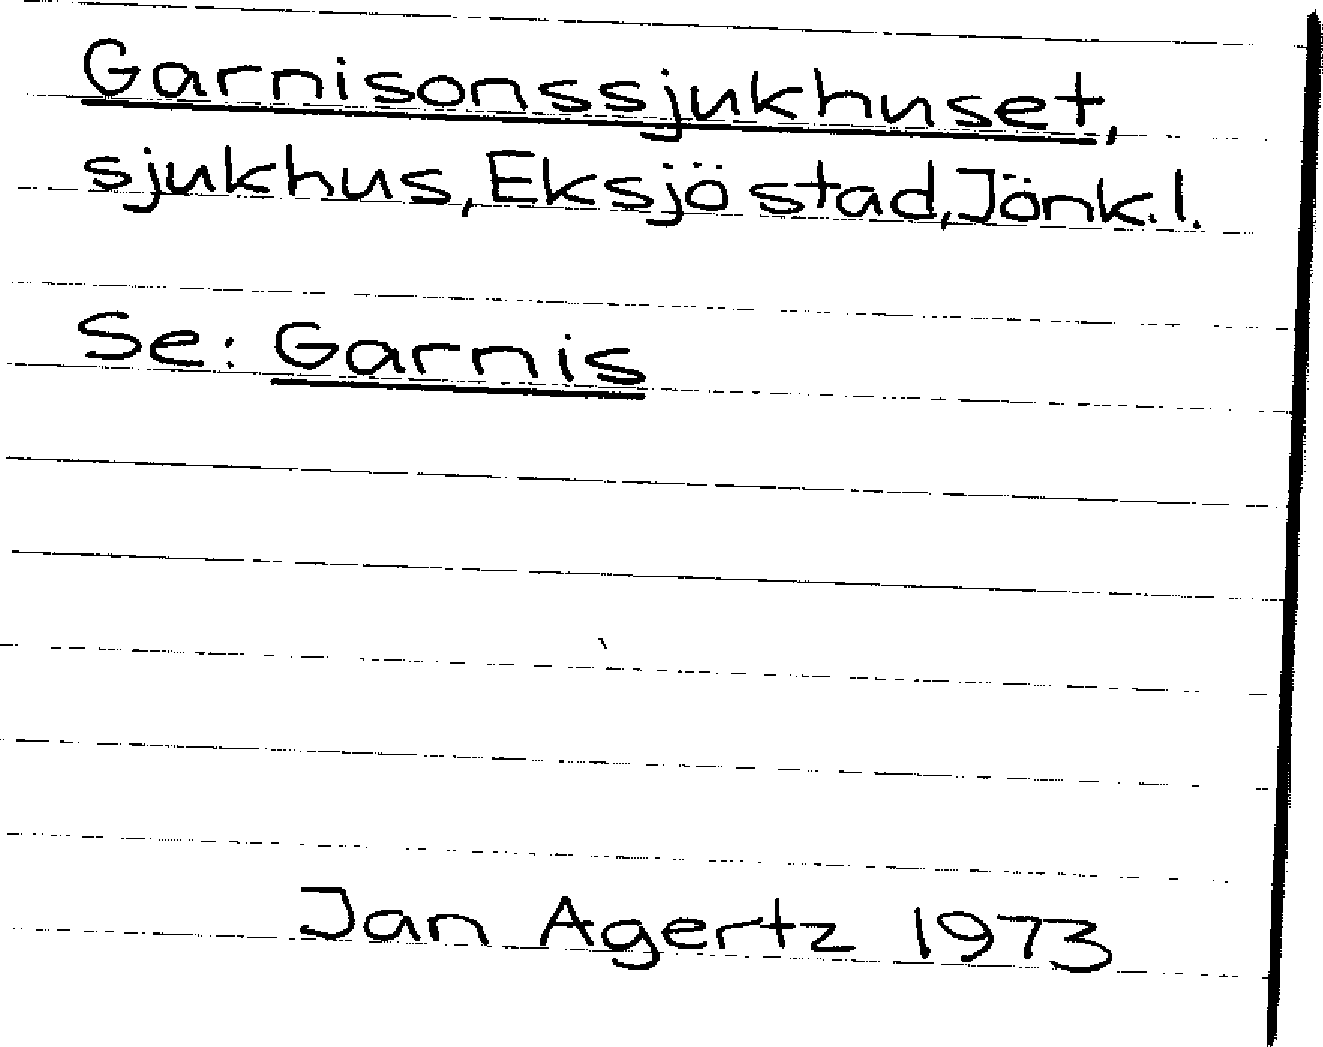 Garnisonssjukhuset,
sjukhus, Eksjö stad, Jönk.l.
Se: Garnis
Jan Agertz 1973